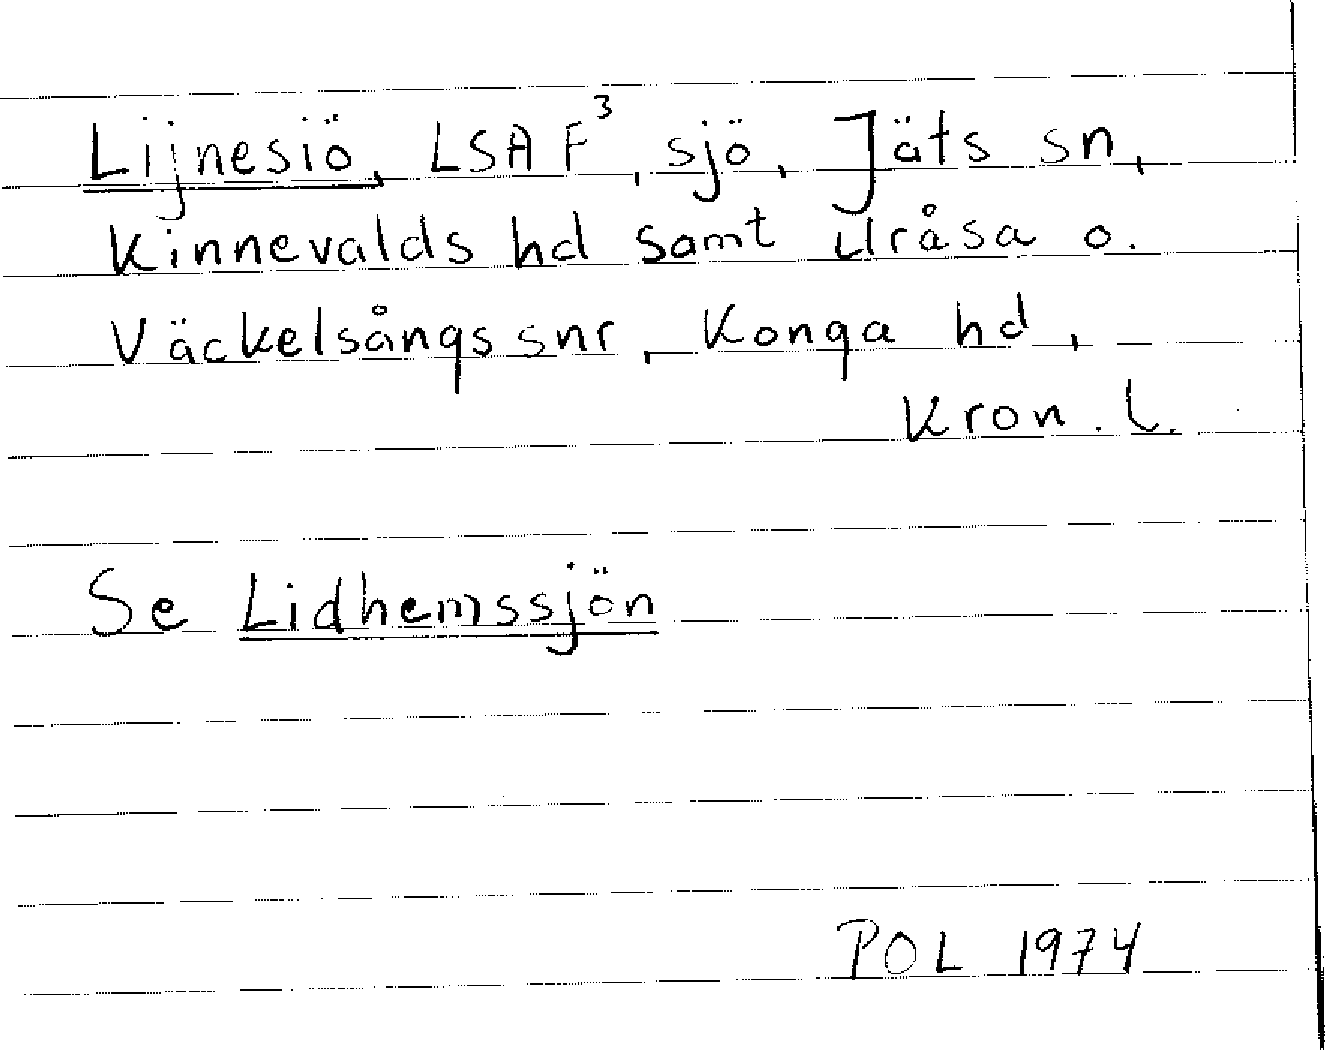 Lijnesiö, LSA F³, sjö, Jäts sn,
Kinnevalds hd samt Uråsa o.
Väckelsångs snr, Konga hd,
Kron. l.
Se Lidhemssjön
POL 1974